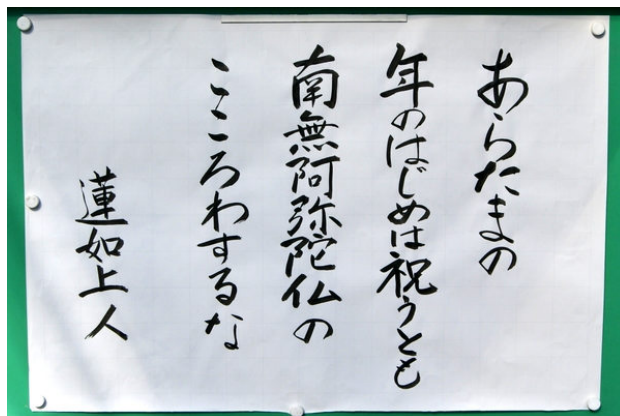 あらたまの
年のはじめは祝うとも
南無阿弥陀仏の
こころわするな
蓮如上人